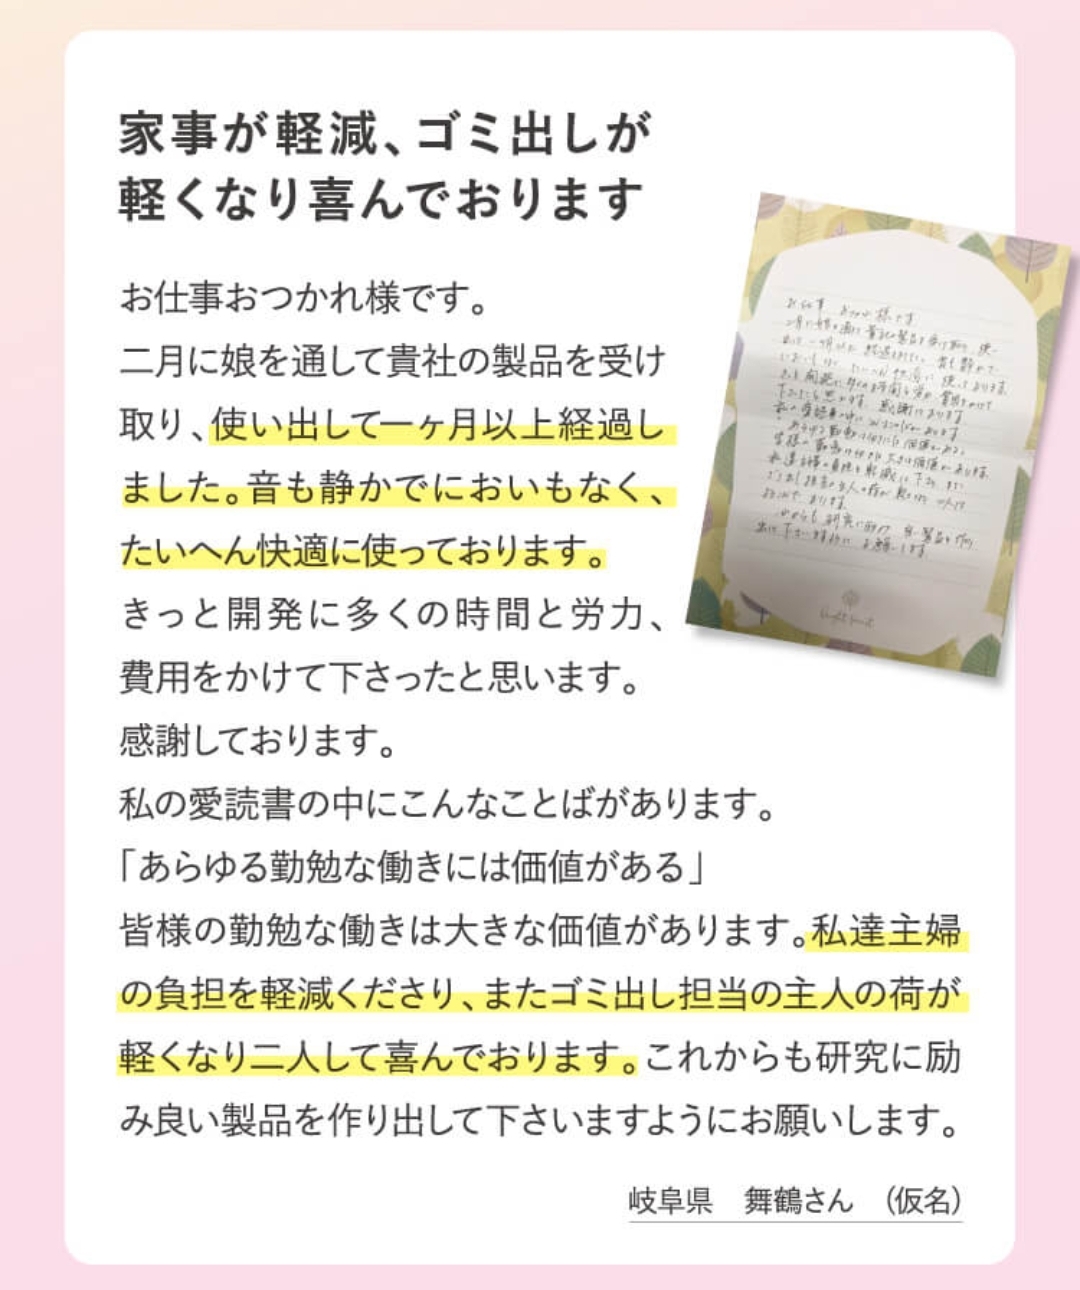 家事が軽減、ゴミ出しが
軽くなり喜んでおります
お仕事おつかれ様です。
二月に娘を通して貴社の製品を受け
取り、使い出して一ヶ月以上経過し
ました。音も静かでにおいもなく、
たいへん快適に使っております。
きっと開発に多くの時間と労力、
費用をかけて下さったと思います。
感謝しております。
私の愛読書の中にこんなことばがあります。
「あらゆる勤勉な働きには価値がある」
皆様の勤勉な働きは大きな価値があります。私達主婦
の負担を軽減くださり、またゴミ出し担当の主人の荷が
軽くなり二人して喜んでおります。これからも研究に励
み良い製品を作り出して下さいますようにお願いします。
岐阜県　舞鶴さん　（仮名）